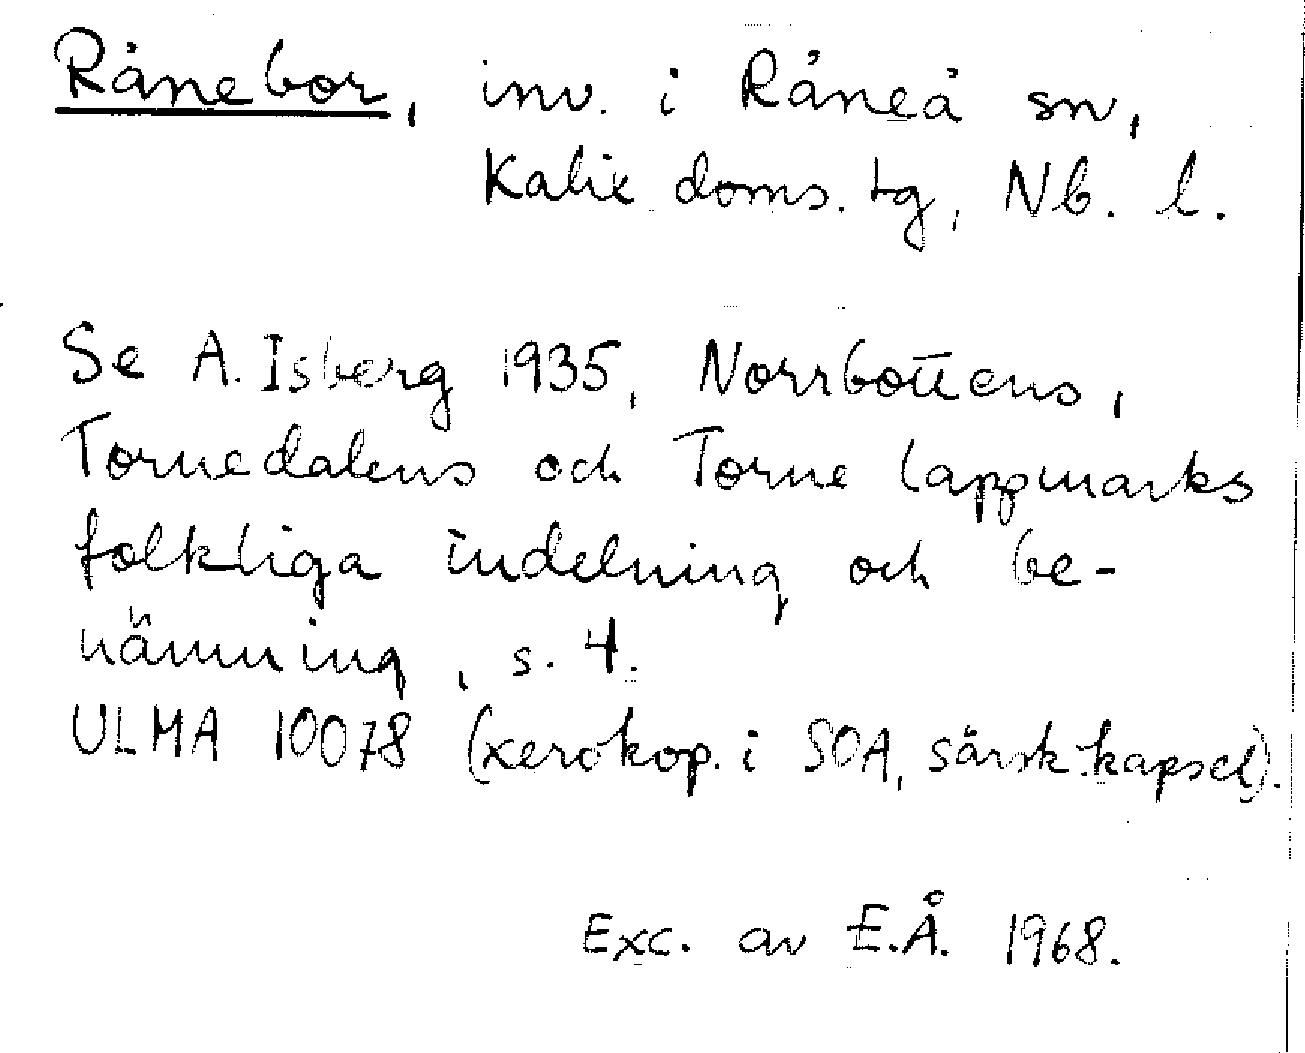 Rånebor, inv. i Råneå sn,
Kalix doms. tg, Nb. l.
Se A. Isberg 1935, Norrbottens,
Tornedalens och Torne lappmarks
folkliga indelning och be-
nämning, s. 4.
ULMA 10078 (xerokop. i SOA, särsk. kapsel).
Exc. av E.Å. 1968.